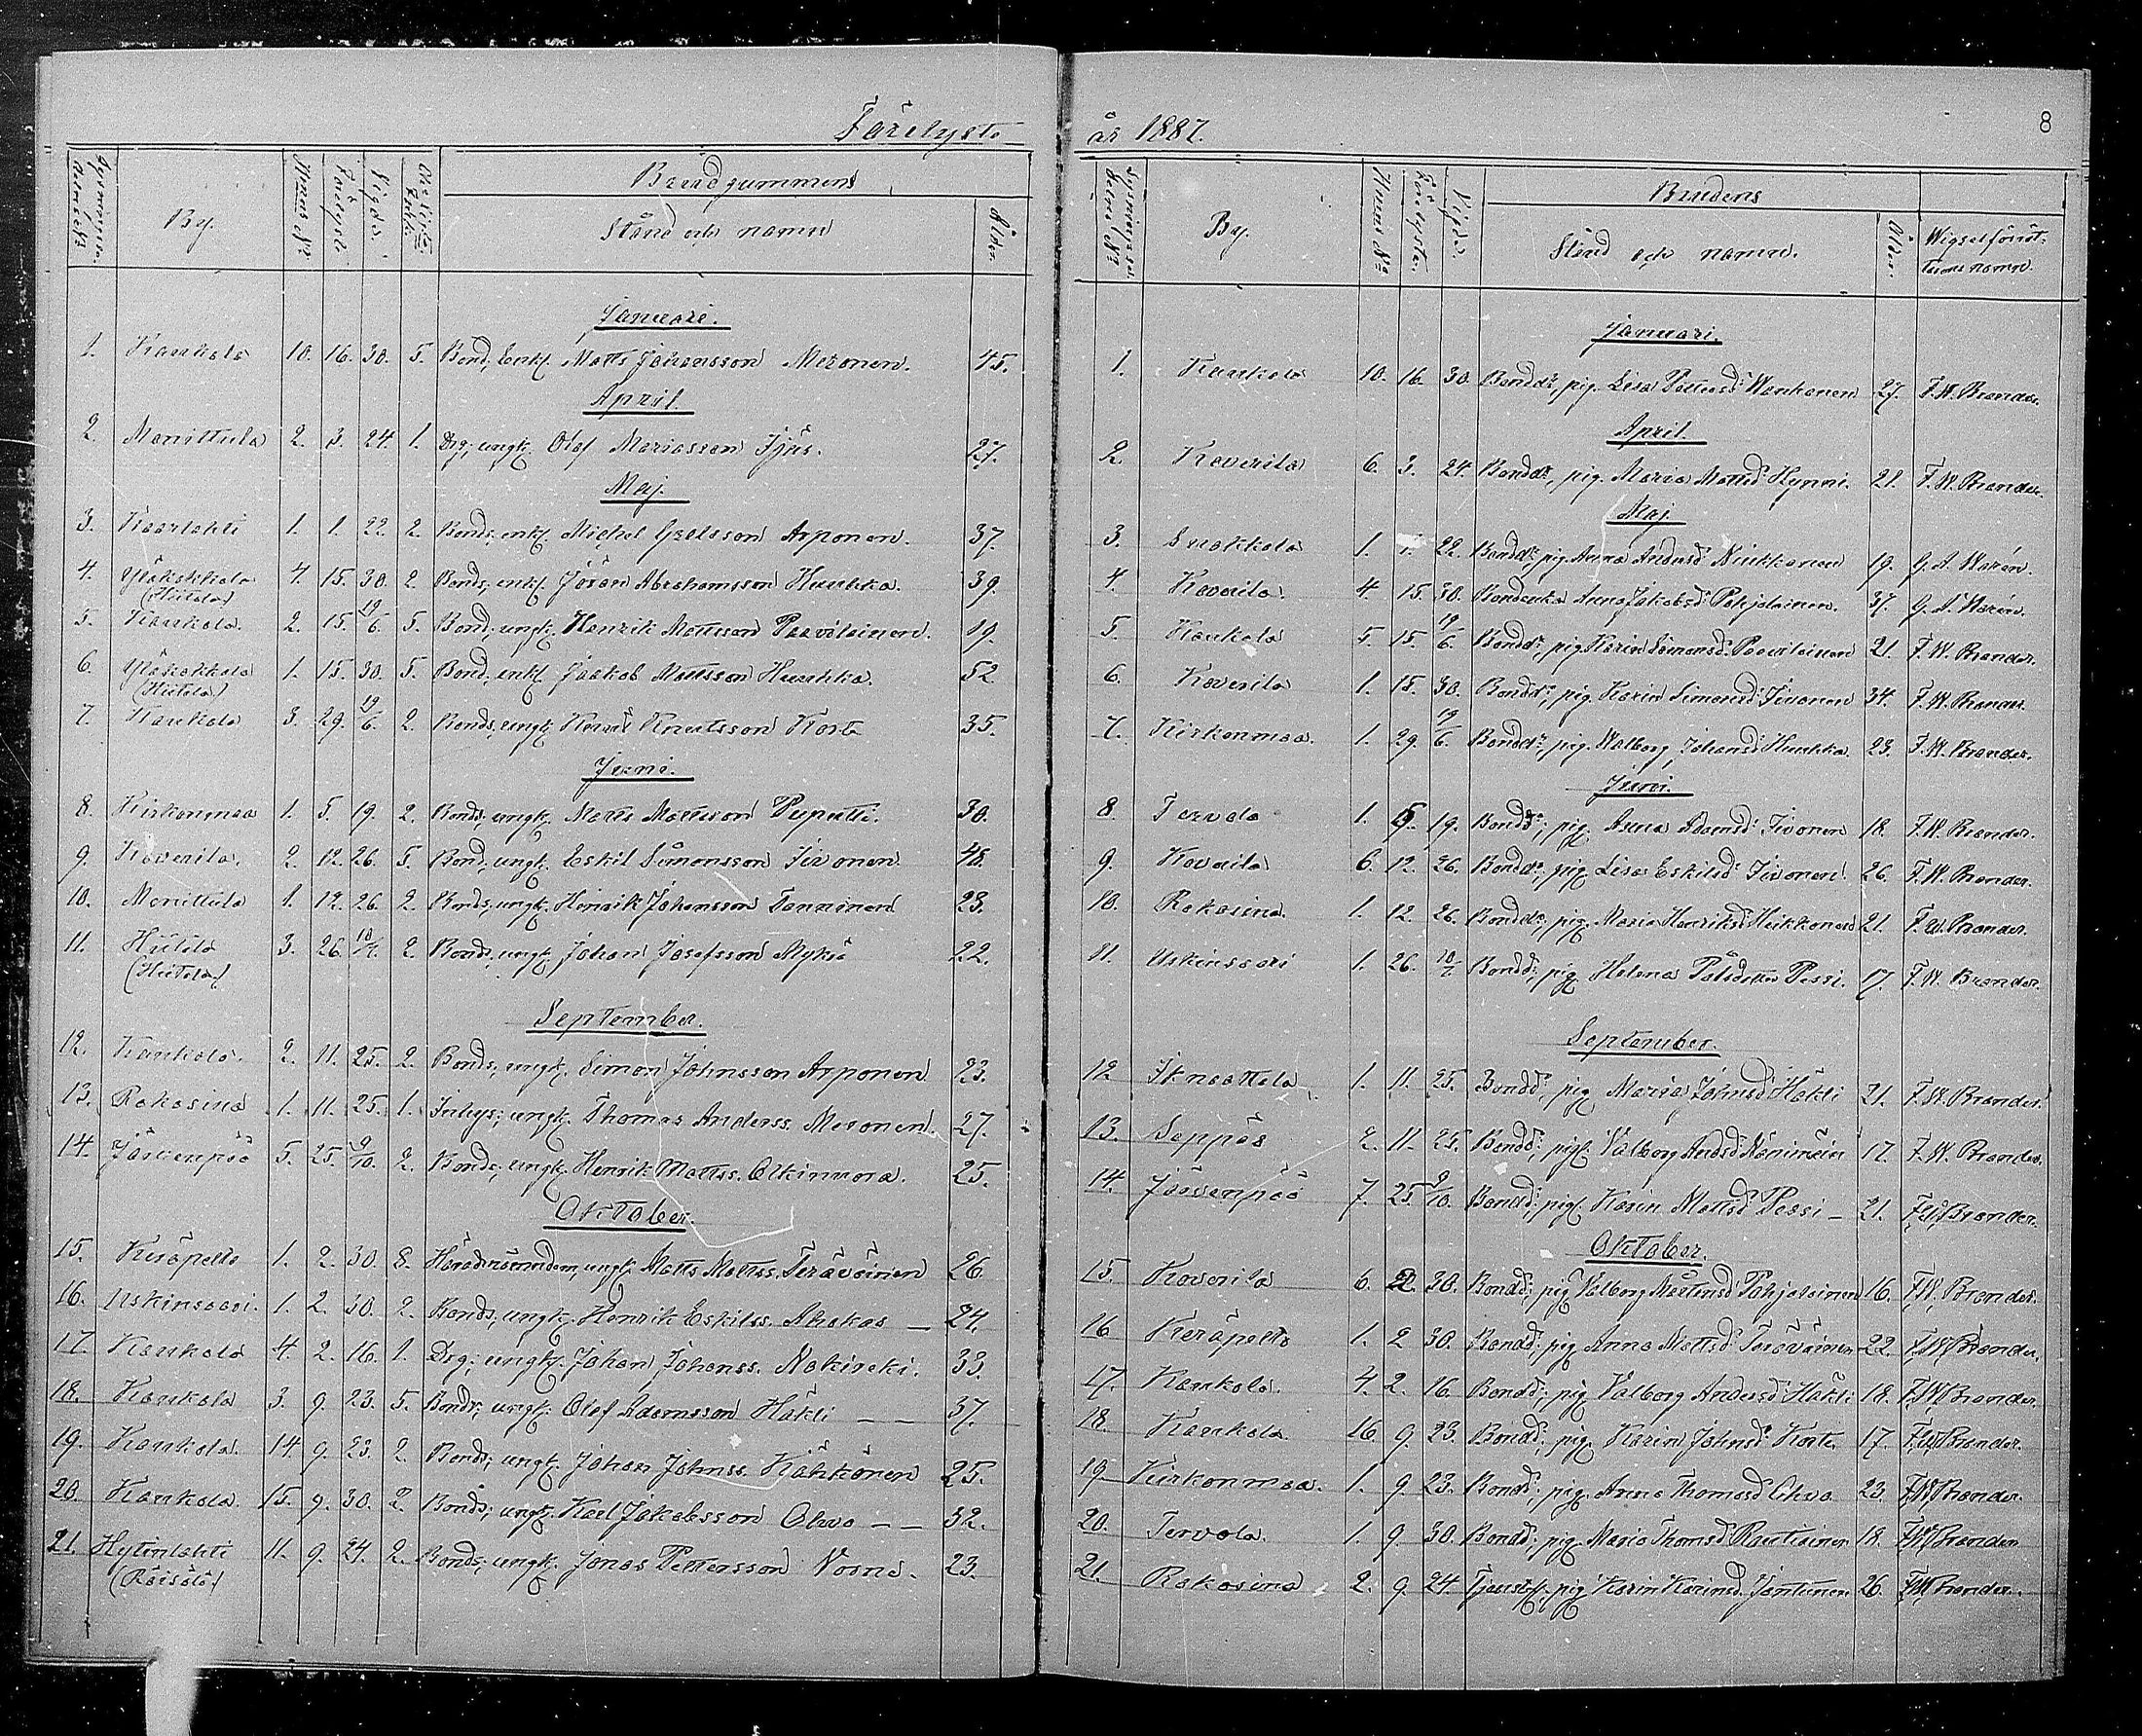 Förelyste
Brudgummens
By.
Hemm. No
Förelyste
Vigde.
Stånd och namn
Ålder.
Januari.
1. Kaukola 10. 16. 30. 5. Bond; enkl. Matts Johansson Meronen. 45.
April.
2. Monittula 2. 3. 24. 1. Drg; ungk. Olof Mariasson Ijäs. 27.
Maj.
3. Kaarlahti 1. 1. 22. 2. Bonds; enkl. Michel Arponen. 37.
4. Yläkokkola 4. 15. 30. 2. Bonds; enkl. Jöran Abrahamsson Huuhka. 39.
(Hiitola)
5. Kaukola. 2. 15. 19/6. 5. Bond; ungk. Henrik Mattsson Paavilainen. 19.
6. Yläkokkola 1. 15. 30. 5. Bond; enkl. Jaakob Mattsson Huuhka. 52
(Hiitola)
7. Kaukola 3. 29. 19/6. 2. Bonds; ungk. Knutsson Korte 35.
Juni.
8. Kirkonmaa 1. 5. 19. 2. Bonds; ungk. Matts Mattsson Puputti. 30.
9. Koverila. 2. 12. 26. 5. Bond; ungk. Eskil Simonsson Sivonen 48.
10. Monittula 1. 12. 26. 2. Bonds; ungk. Henrik Johansson Tanninen 23.
11. Hiitola 3. 26. 10/7. 2. Bonds; ungk. Johan Josefsson Mykrä 22.
(Hiitola)
September.
12. Kaukola. 2. 11. 25. 2. Bonds; ungk. Simon Johnsson Arponen 23.
13. Rokosina 1. 11. 25. 1. Inhys; ungk. Thomas Anderss. Meronen. 27.
14. Järvenpää 5. 25. 9/10. 2. Bonds; ungk. Henrik Mattss. Olkinuora. 25.
Oktober.
15. Keräpelto 1. 2. 30. 8. ungk. Matts Mattss. Teräväinen 26
16. Uskinsaari. 1. 2. 30. 2. Bonds; ungk. Henrik Eskilss. Ahokas — 24.
17. Kaukola 4. 2. 16. 1. Drg; ungk. Johan Johanss. Nokireki. 33.
18. Kaukola 3. 9. 23. 5. Bond; ungk. Olof Adamsson Häkli — — 37.
19. Kaukola. 14. 9. 23. 2. Bonds; ungk. Johan Johnss. Kähkönen 25.
20. Kaukola. 15. 9. 30. 2. Bonds; ungk. Karl Jakobsson — — 32.
21. Hytinlahti 11. 9. 24. 2. Bonds; ungk. Jonas Pettersson 23.
(Räisälä)
år 1887.
8
Brudens
By.
Hemm. No
Förelysta.
Vigde.
Stånd och namn.
Ålder.
Wigselförrät-
tarens namn.
Januari.
1. Kaukola 10. 16. 30. Bondd:, pig. Lisa Wankonen 27. F.W. Brander.
April.
2. Koverila 6. 3. 24. Bondd:, pig. Maria Mattsd: Hynni. 21. F.W. Brander.
Maj.
3. Suokkola 1. 1. 22. Bondd:, pig. Anna Andersd: Niukkanen 19. G.A. Warén.
4. Koverila 4. 15. 30. Bondenka Anna Jakobsd: Pohjolainen. 37. G.A. Warén.
5. Kaukola 5. 15. 19/6. Bondd:, pig. Karin Simonsd: Paavilainen 21. F.W. Brander.
6. Koverila 1. 15. 30. Bondd:, pig. Karin Simonsd: Sivonen 34. F.W. Brander.
7. Kirkonmaa. 1. 29. 19/6. Bondd:, pig. Walborg Johansd: Huuhka 23. F.W. Brander.
Juni.
8. Tervola 1. 5. 19. Bondd:, pig. Anna Adamsd: Sivonen 18. F.W. Brander.
9. Koverila 6. 12. 26. Bondd:, pig. Lisa Eskilsd: Sivonen 26. F.W. Brander.
10. Rokosina. 1. 12. 26. Bondd:, pig. Maria Henriksd: Heikkonen 21. F.W. Brander.
11. Uskinsaari 1. 26. 10/7. Bondd:, pig. Helena Pessi. 17. F.W. Brander.
September.
12 1. 11. 25. Bondd:, pig. Maria Johnsd: Häkli 21. F.W. Brander.
13. Seppäs 2. 11. 25. Bondd:, pig. Valborg Andsd: 17. F.W. Brander.
14. Järvenpää 7. 25 9/10. Bondd:, pig. Karin Mattsd: Pessi — 21. F.W. Brander.
Oktober.
15. Koverila 6. 2. 30. Bondd:, pig. Valborg Mårtensd: Pohjolainen 16. F.W. Brander.
16 Keräpelto 1. 2 30. Bondd:, pig. Anna Mattsd: Teräväinen 22. F.W. Brander.
17. Kaukola. 4. 2. 16. Bondd:, pig. Valborg Andersd: Häkli 18. F.W. Brander.
18. Kaukola 16. 9. 23. Bondd:, pig. Karin Johnsd: Korte 17. F.W. Brander.
19 Kirkonmaa. 1. 9. 23. Bondd:, pig. Anna Thomasd: 23. F.W. Brander.
20. Tervola. 1. 9. 30. Bondd:, pig. Maria Thomsd: Rautiainen 18. F.W. Brander
21. Rokosina 2. 9. 24. pig. Karin Karinsd: Jantunen 26. F.W. Brander.